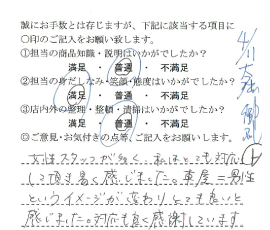 誠にお手数とは存じますが、下記に該当する項目に
○印のご記入をお願い致します。
①担当の商品知識・説明はいかがでしたか?
満足・普通・不満足
②担当の身だしなみ・笑顔・態度はいかがでしたか?
満足・普通・不満足
③店内外の整理・整頓・清掃はいかがでしたか?
満足・普通・不満足
◎ご意見・お気付きの点等、ご記入をお願いします。
女性スタッフが多く 私はとても対応
して頂き易く感じました。車屋=男性
というイメージが変わりとても良いと
感じました。対応も良く感謝しています
4/11